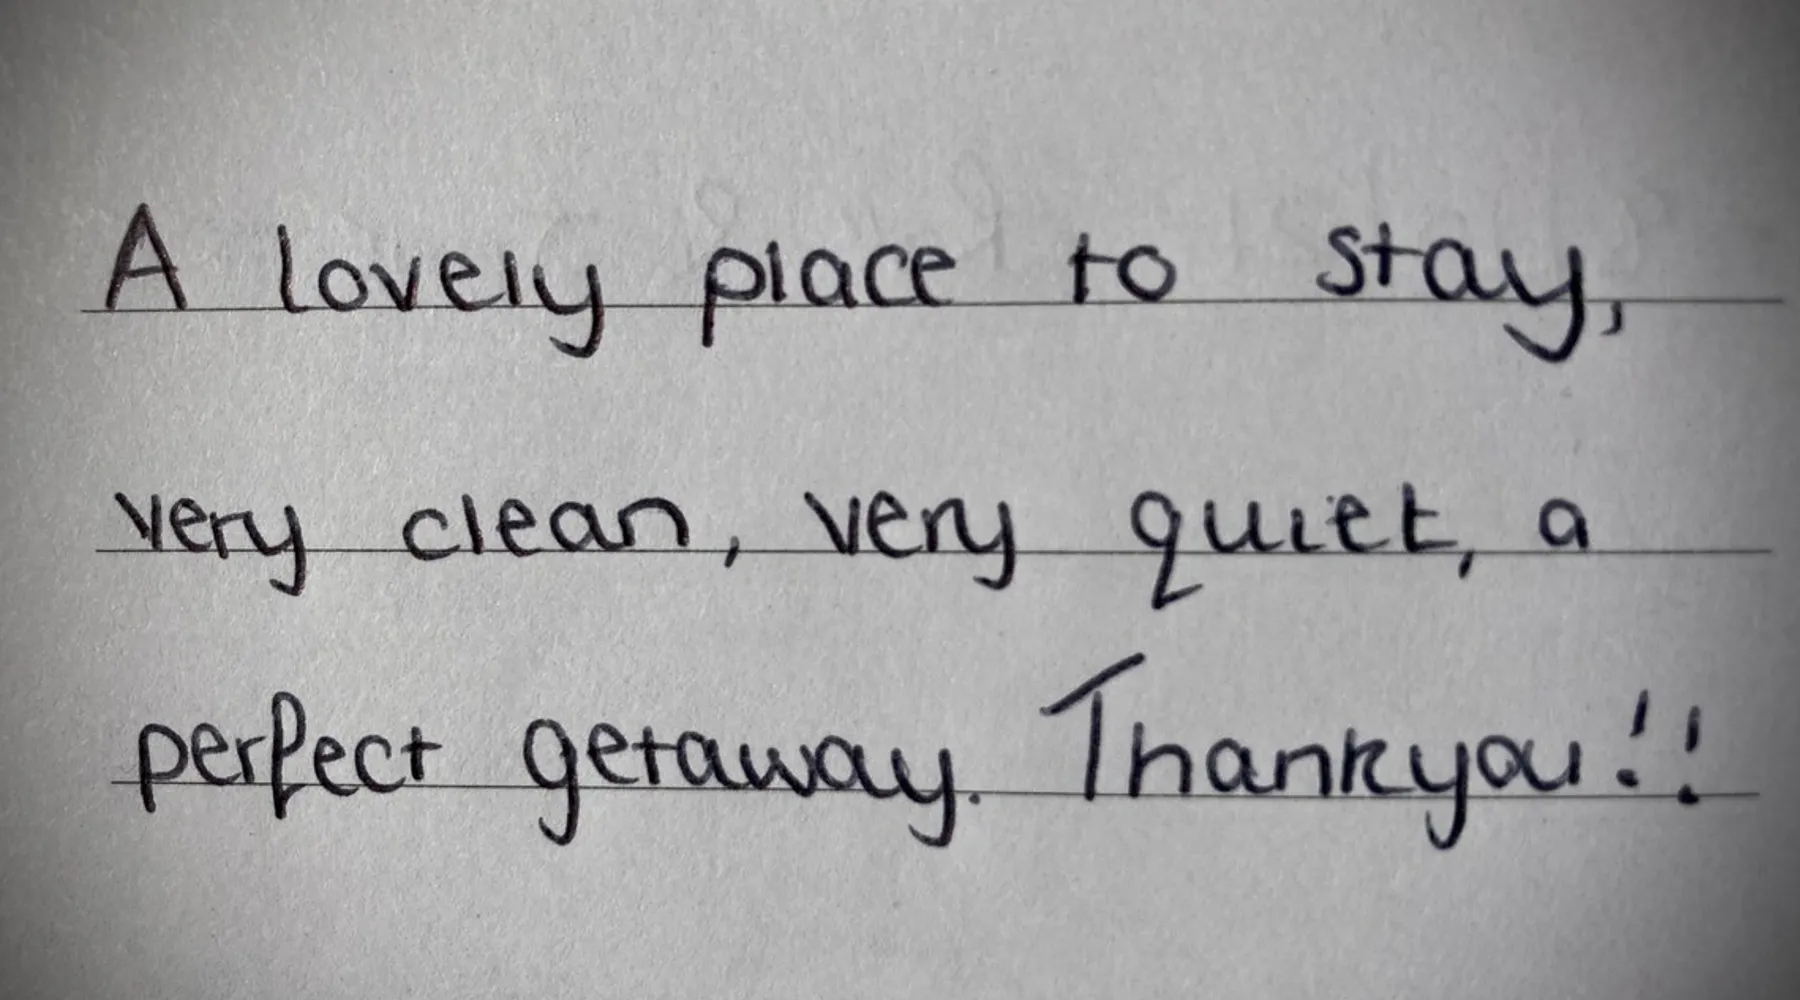 A lovely place to stay,
very clean, very quiet, a
perfect getaway. Thankyou!!